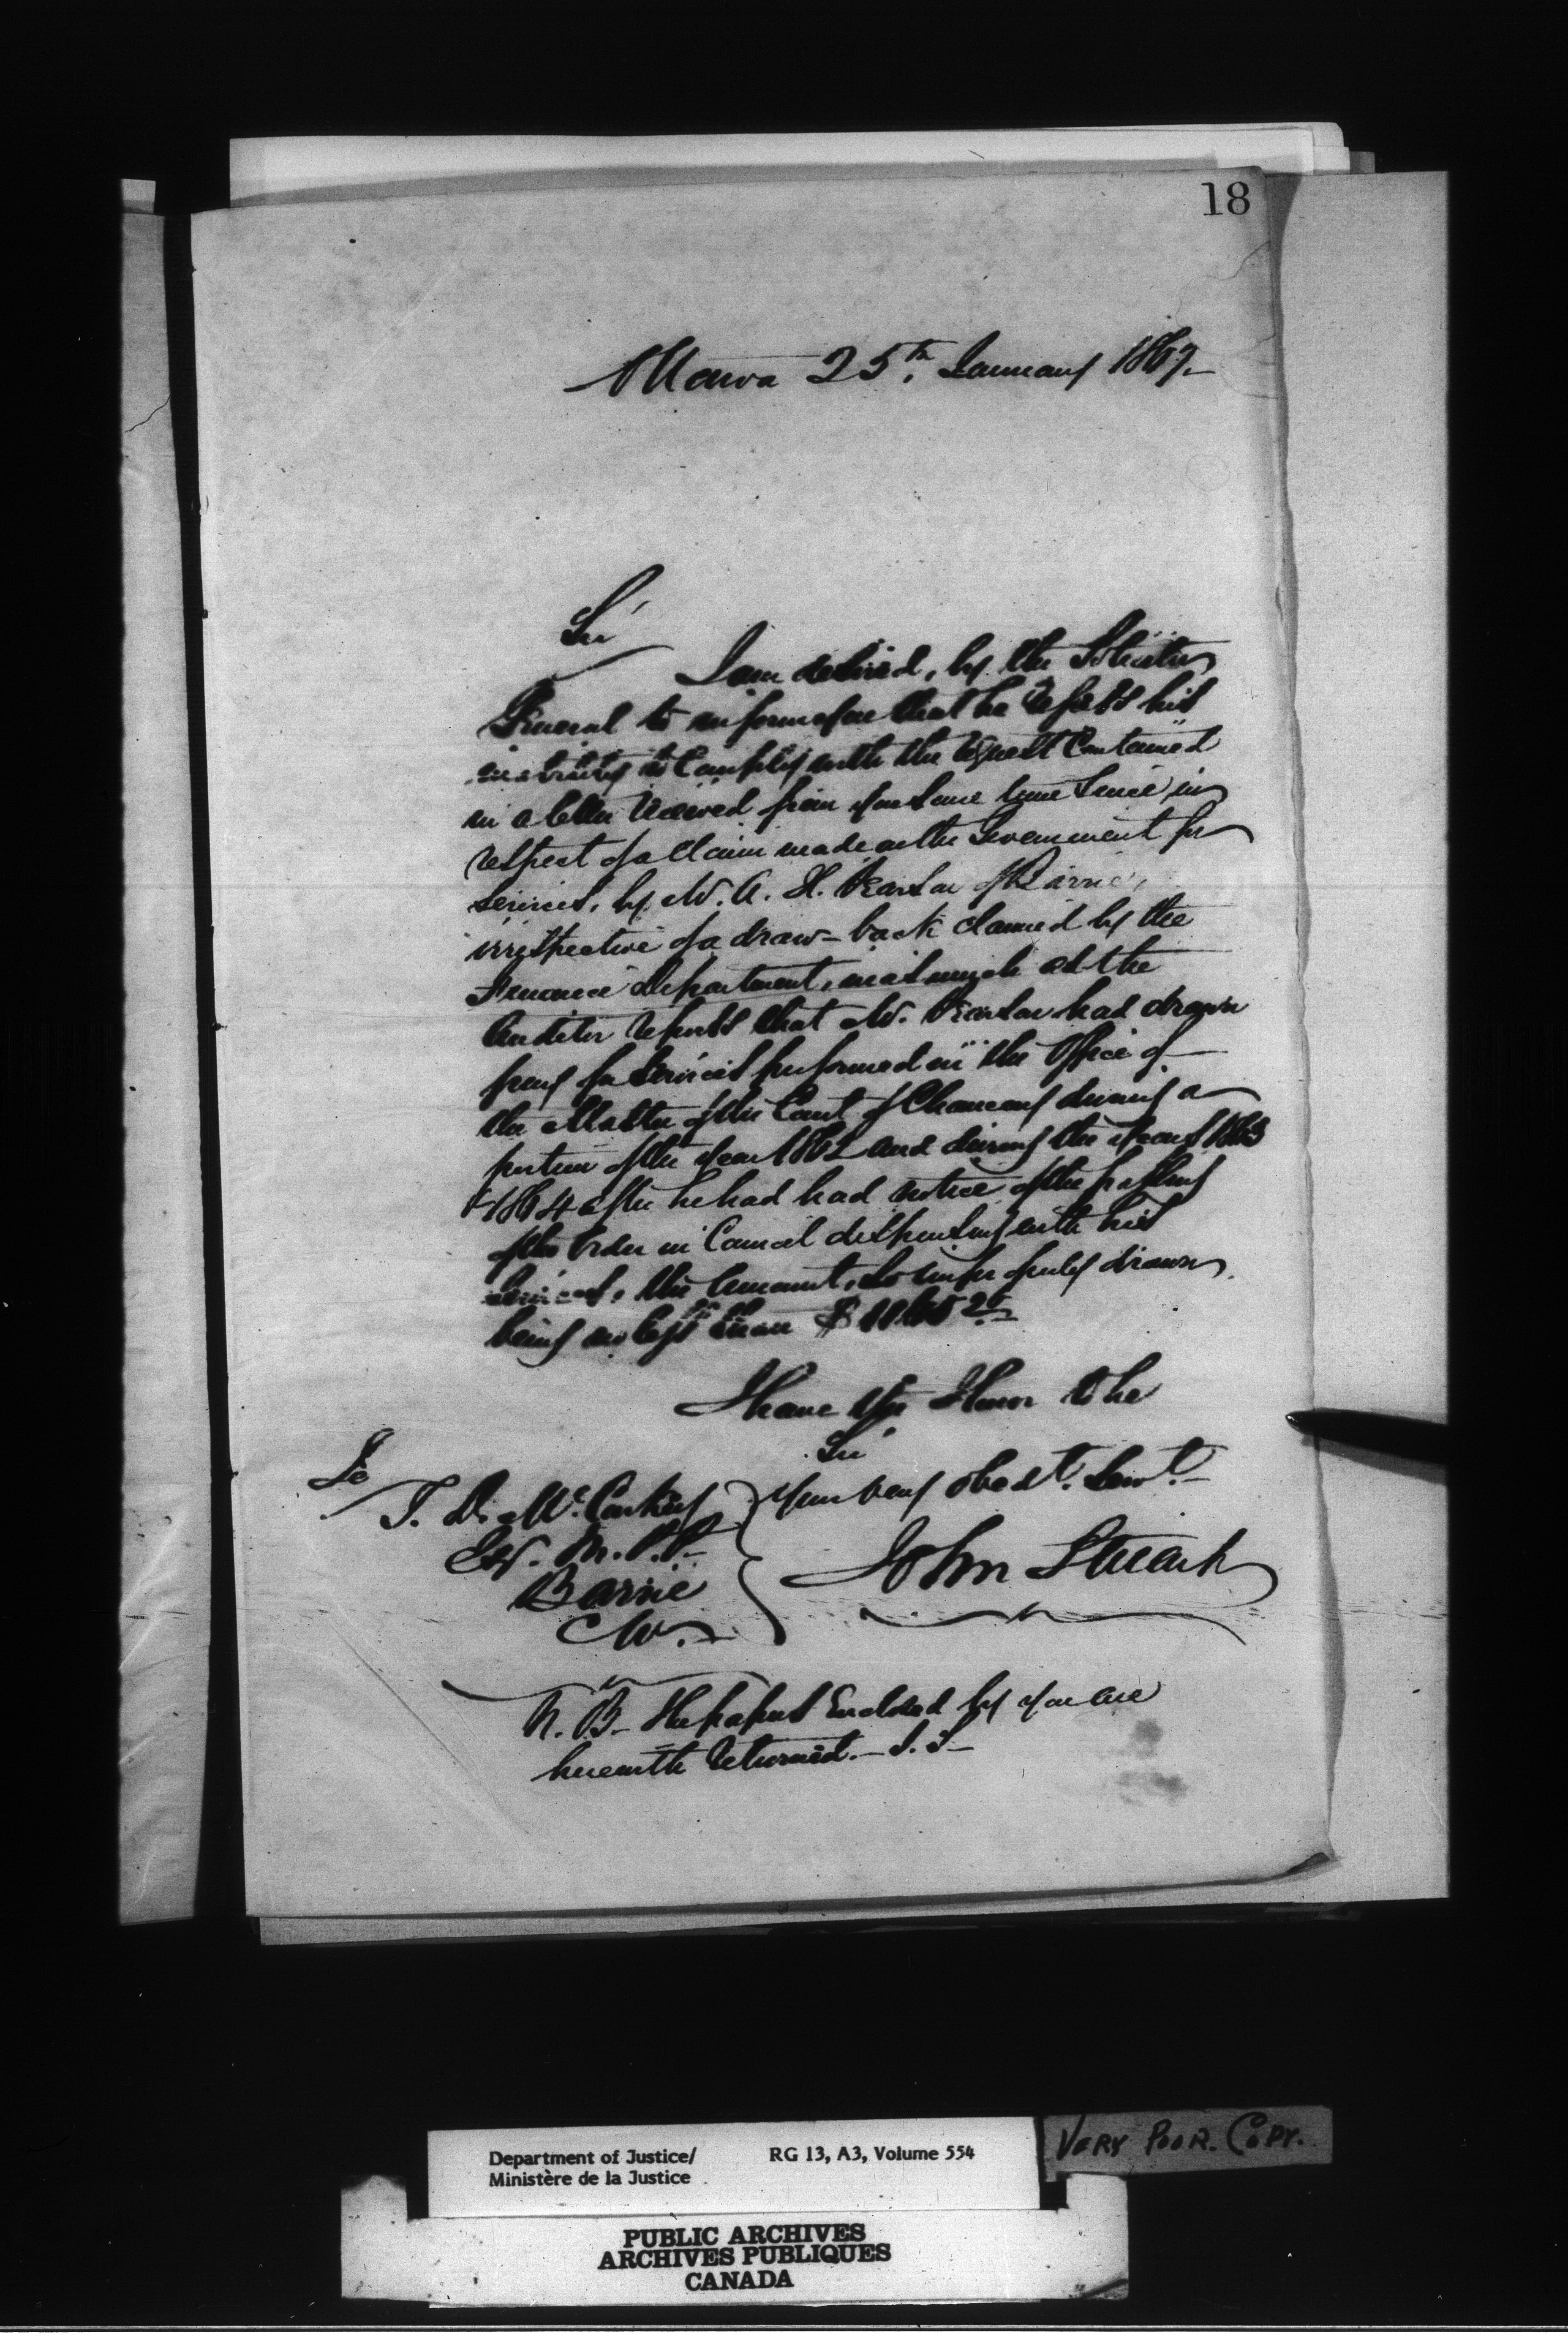 18
Ottawa 25th January 1867.
Sir
I am desired, by the Solicitor
General to inform you that he regrets his
inability to comply with the request contained
in a letter received from you some time since in
respect of a claim made on the Government for
services, by Mr. A. H. of Barrie,
irrespective of a draw-back claimed by the
Finance Department, inasmuch as the
Auditor reports that Mr. had drawn
pay for services performed in the Office of
the Master of the Court of Chancery during a
portion of the year 1862 and during the years 1863
& 1864 after he had had notice of the passing
of the Order in Council dispensing with his
services, the amount, so improperly drawn
being no less than
I have the Honor to be
Sir
Your very obedt. Servt.
John Stuart
To
T. D. McConkey
Esq. M.P.P.
Barrie
C W.
N.B. The papers enclosed by you are
herewith returned. — J. S —
Department of Justice/
Ministère de la Justice
RG 13, A3, Volume 554
VERY POOR. COPY.
PUBLIC ARCHIVES
ARCHIVES PUBLIQUES
CANADA